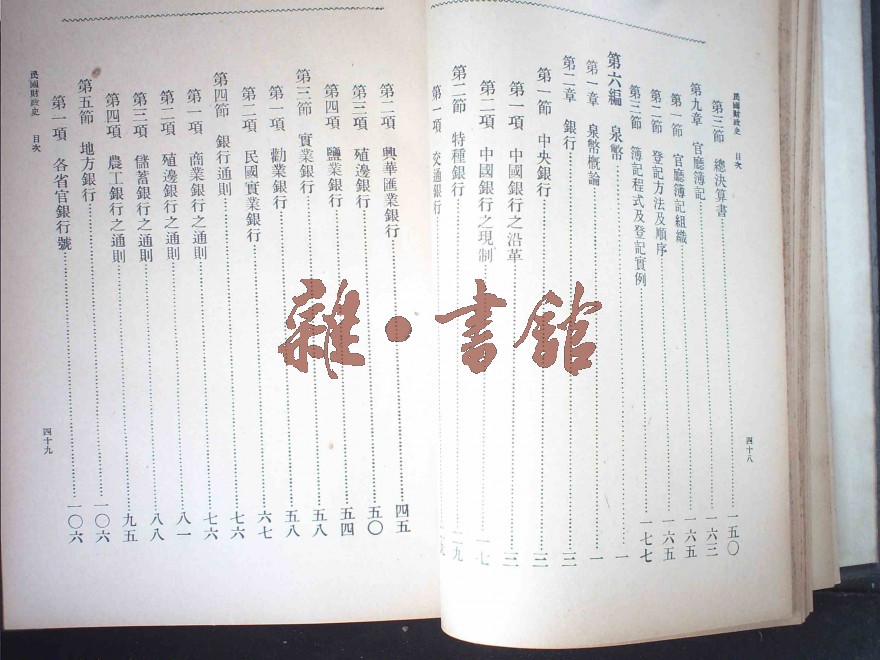 民國財政史 目次
第三節 總決算書 一五〇
第九章 官廳簿記 一六三
第一節 官廳簿記組織 一六五
第二節 登記方法及順序 一六五
第三節 簿記程式及登記實例 一七七
第六編 泉幣 一
第一章 泉幣概論 一
第二章 銀行 三
第一節 中央銀行 三
第一項 中國銀行之沿革 三
第二項 中國銀行之現制 一七
第二節 特種銀行 二九
第一項 交通銀行
四十八
民國財政史 目次
第二項 興華匯業銀行 四五
第三項 殖邊銀行 五〇
第四項 鹽業銀行 五四
第三節 實業銀行 五八
第一項 勸業銀行 五八
第二項 民國實業銀行 六七
第四節 銀行通則 七六
第一項 商業銀行之通則 七六
第二項 殖邊銀行之通則 八一
第三項 儲蓄銀行之通則 八八
第四項 農工銀行之通則 九五
第五節 地方銀行 一〇六
第一項 各省官銀行號 一〇六
四十九
雜·書館